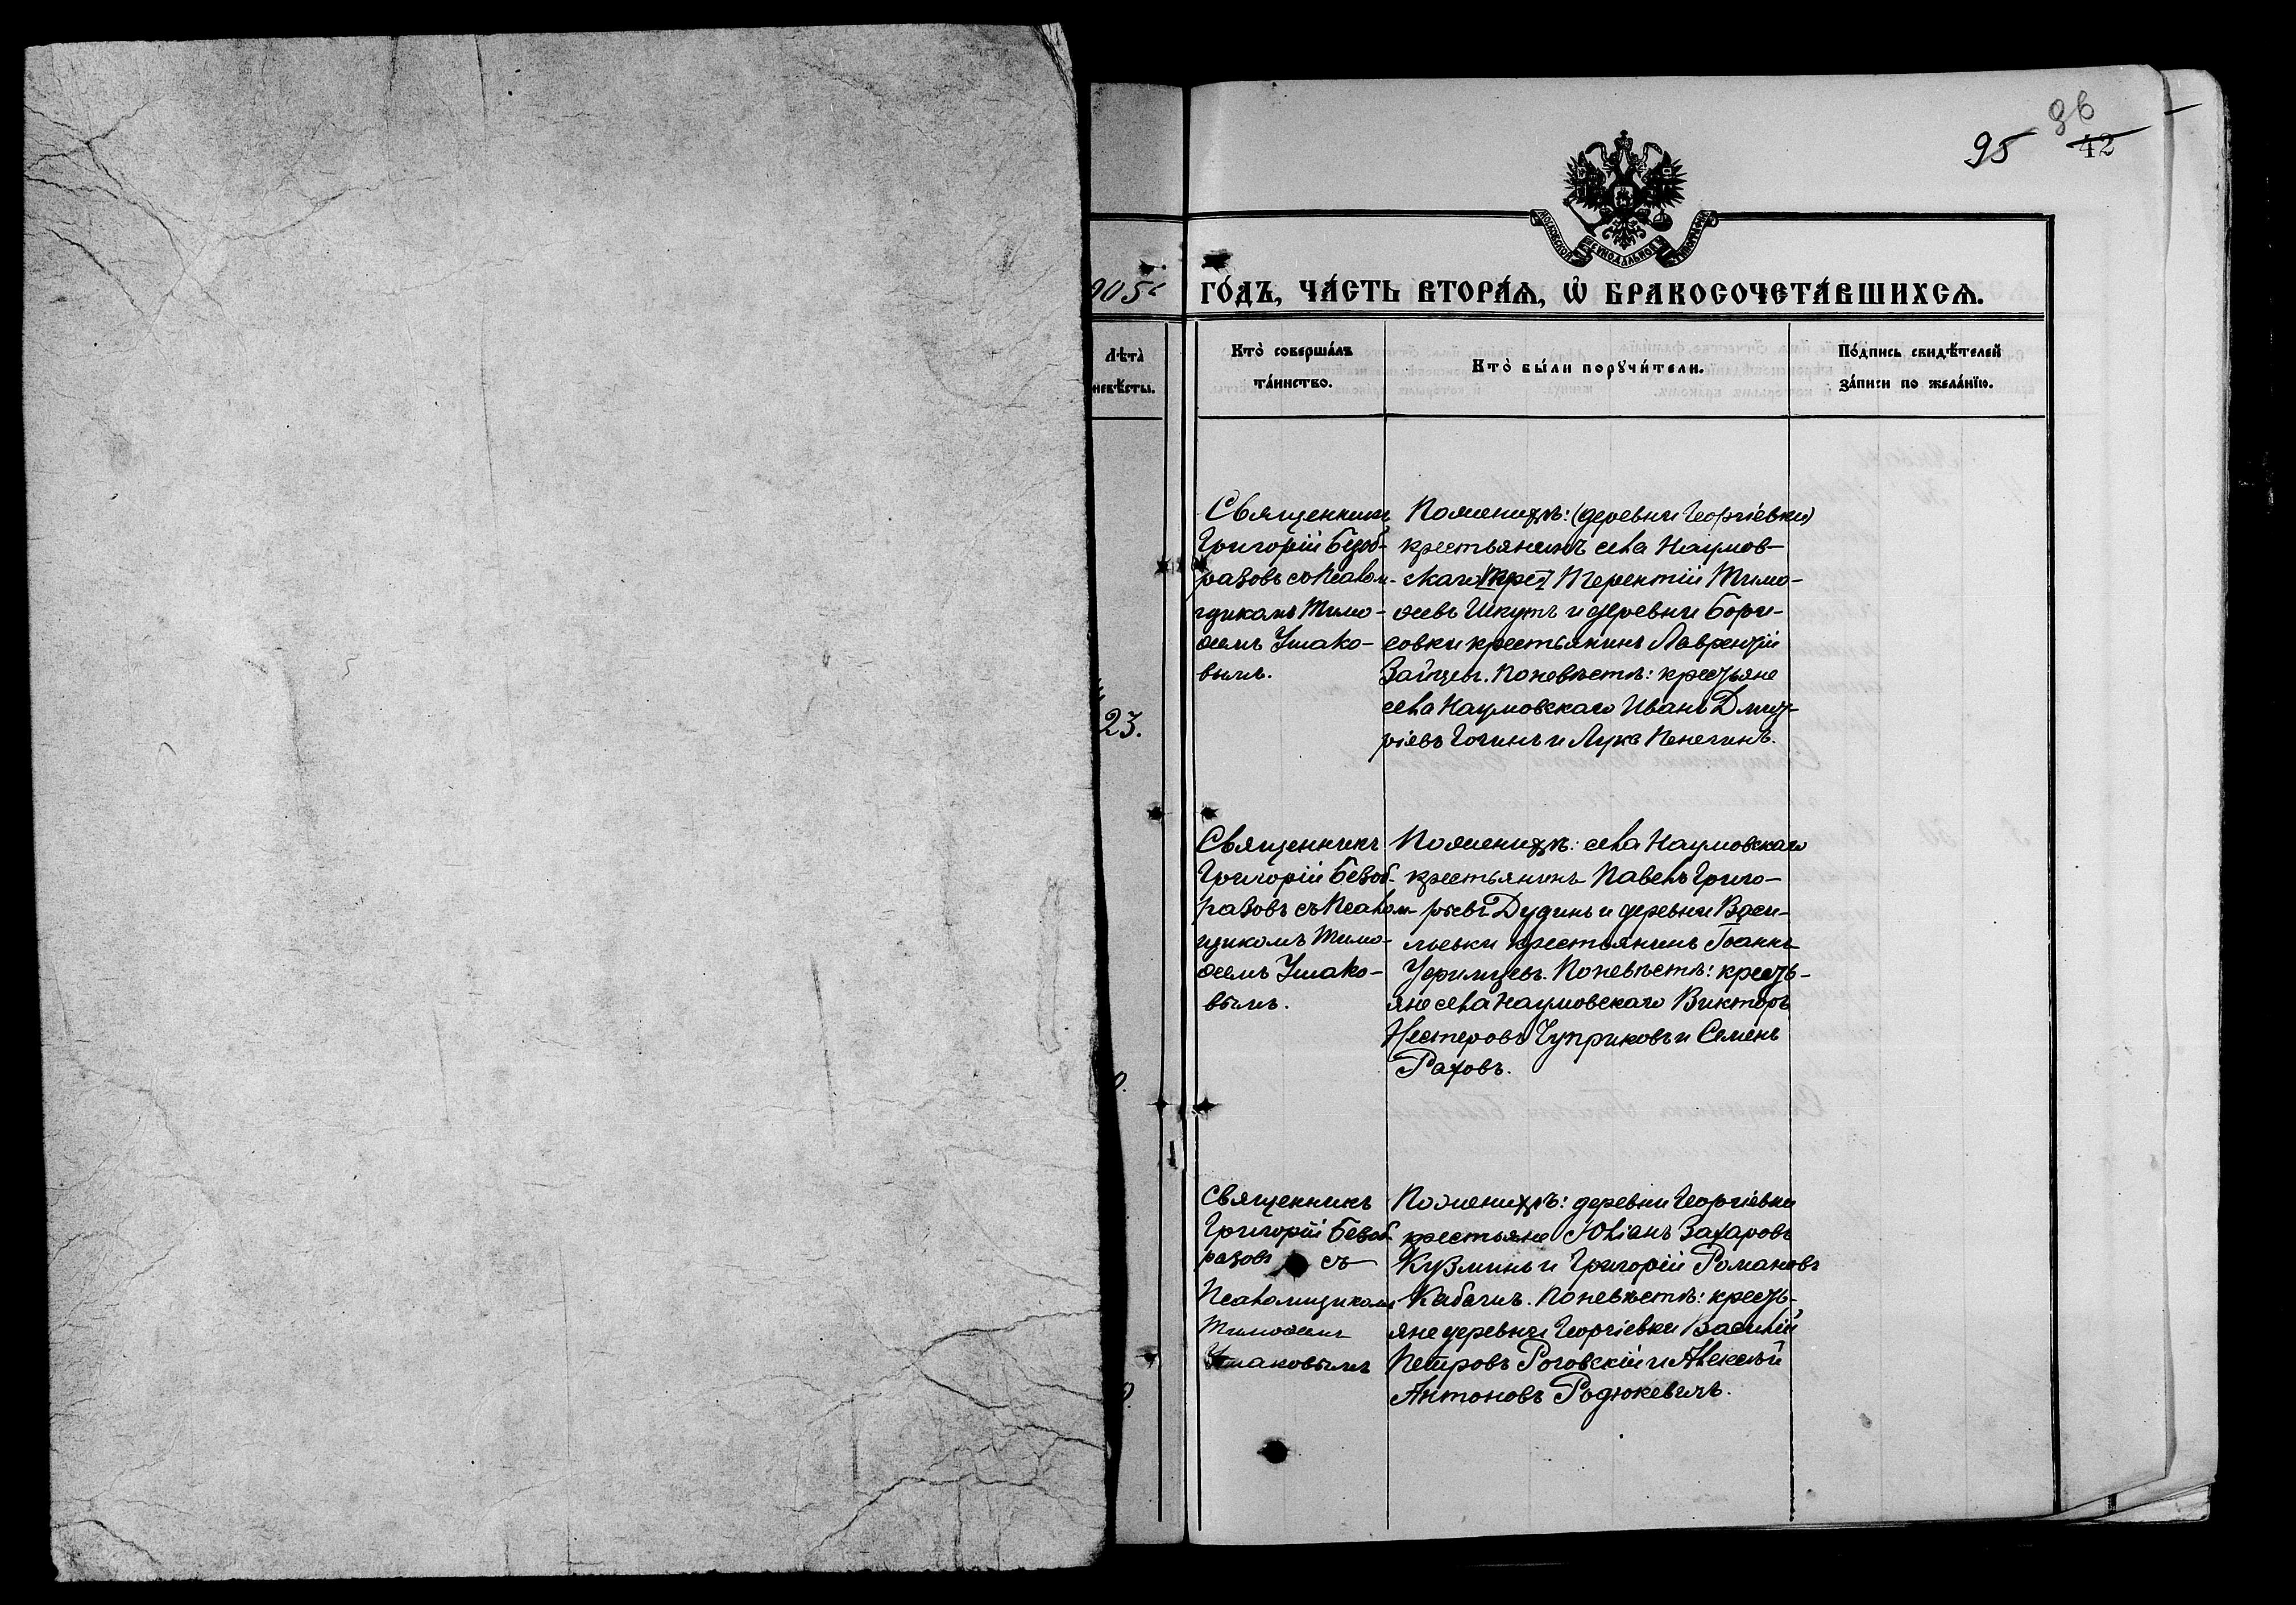 96
95 42
МОСКОВСКОЙ СѴНОДАЛЬНОЙ ТИПОГРАФІИ
905 го́дъ, ча́сть втора́ѧ, ѡ҆ бракосочета́вшихсѧ.
лѣта̀
невѣ́сты.
Кто̀ соверша́лъ
та́инство.
Кто̀ бы́ли порꙋчи́тели.
По́дпись свидѣ́телей
за́писи по жела́нїю.
23.
Священникъ
Григорій Безоб-
разовъ съ Псалом-
щикомъ Тимо-
ѳеемъ Ушако-
вымъ.
По женихѣ: (деревни Георгіевки)
крестьянинъ села Наумов-
скаго Терентій Тимо-
ѳеевъ Шкутъ и деревни Бори-
совки крестьянинъ Лаврентій
Зайцевъ. По невѣстѣ: крестьяне
села Наумовскаго Иванъ Дмит-
ріевъ и Лука
Священникъ
Григорій Безоб-
разовъ съ Псалом-
щикомъ Тимо-
ѳеемъ Ушако-
вымъ.
По женихѣ: села Наумовскаго
крестьянинъ Павелъ Григо-
рьевъ Дудинъ и деревни Васи-
льевки крестьянинъ Іоаннъ
По невѣстѣ: кресть-
яне села Наумовскаго Викторъ
Нестеровъ Чуприковъ и Семенъ
Раховъ.
Священникъ
Григорій Безоб-
разовъ съ
Псаломщикомъ
Тимоѳеемъ
Ушаковымъ
По женихѣ: деревни Георгіевки
крестьяне Юліанъ Захаровъ
Кузминъ и Григорій Романовъ
По невѣстѣ: кресть-
яне деревни Георгіевки Василій
Петровъ Роговскій и Алексѣй
Антоновъ Родюкевичъ.